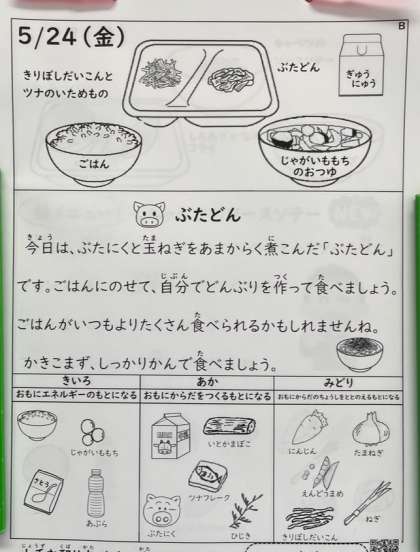 B
5/24(金)
きりぼしだいこんと
ツナのいためもの
ぶたどん
ぎゅう
にゅう
ごはん
じゃがいももち
のおつゆ
ぶたどん
きょう たま に
今日は、ぶたにくと玉ねぎをあまからく煮こんだ「ぶたどん」
じぶん つく た
です。ごはんにのせて、自分でどんぶりを作って食べましょう。
た
ごはんがいつもよりたくさん食べられるかもしれませんね。
た
かきこまず、しっかりかんで食べましょう。
きいろ あか みどり
おもにエネルギーのもとになる おもにからだをつくるもとになる おもにからだのちょうしをととのえるもとになる
じゃがいももち
さとう
あぶら
いとかまぼこ
ツナフレーク
ぶたにく
ひじき
にんじん
たまねぎ
えんどうまめ
ねぎ
きりぼしだいこん